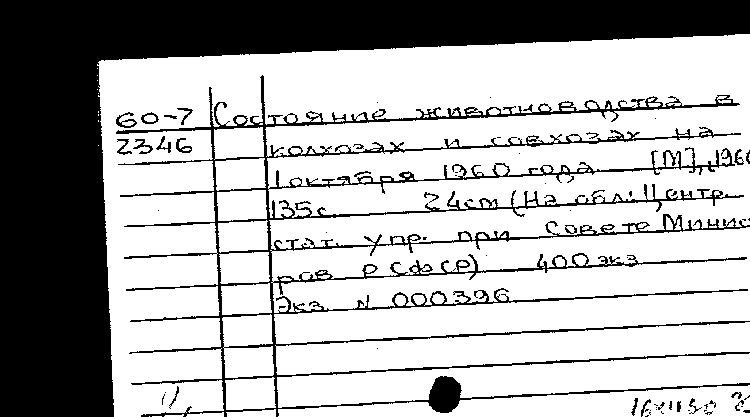 60-7 Состояние животноводства в
2346 колхозах и совхозах на
1 октября 1960 года [М], 1960
135с. 24см (На обл.: Центр.
стат. упр. при Совете Минис
ров РСФСР) 400 экз
Экз N 000396